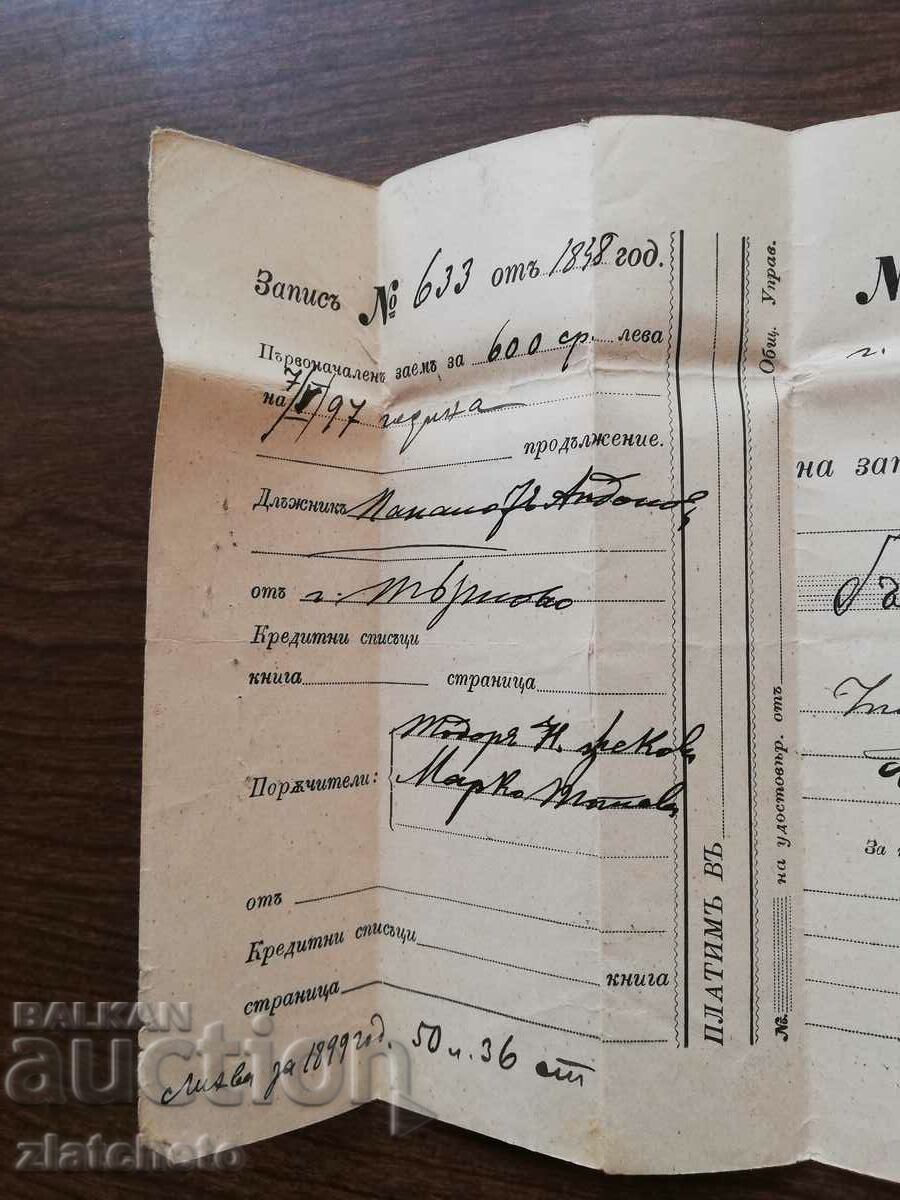 Записъ № 633 отъ 1898 год.
Първоначаленъ заемъ за 600 ср. лева
на 7/V 97 година
продължение.
Длъжникъ Панайотъ
отъ г. Търново
Кредитни списъци
книга страница
Тодоръ Н.
Порѫчители:
Марко
отъ
Кредитни списъци
книга
страница
Лихва за 1899 год. 50 л. 36 ст
ПЛАТИМЪ ВЪ
№. на удостовѣр. отъ Общ. Управ.
г.
на зап
За
BALKAN
auction
zlatcheto